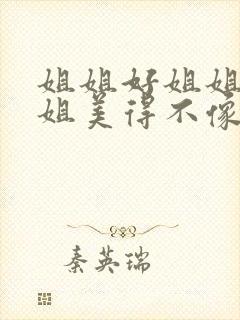 姐姐好姐姐
姐美得不像
秦英瑞